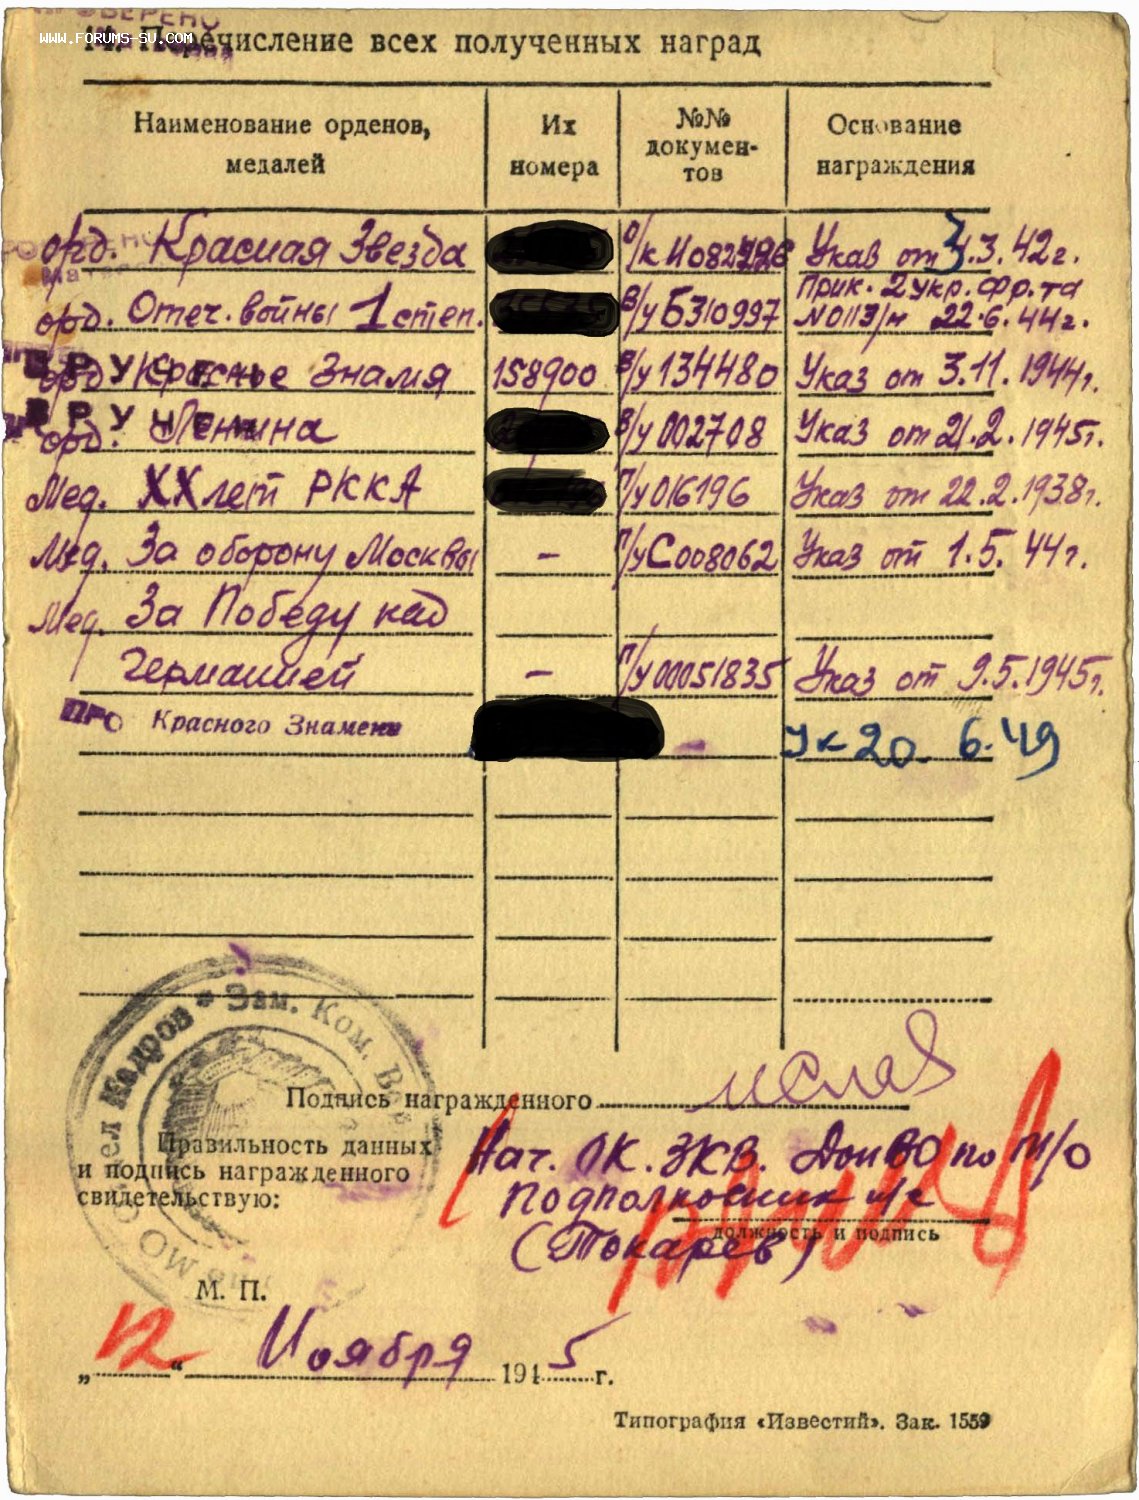 WWW.FORUMS-SU.COM
14. Перечисление всех полученных наград
Наименование орденов, медалей
Их номера
№№ докумен-тов
Основание награждения
орд. Красная Звезда О/к Указ от 3.3.42г.
Прик. 2 укр. фр.та
орд. Отеч. войны 1 степ. В/у Б310997 N0113/н 22.6.44г.
ВРУЧЕН
орд. Красное Знамя 158900 В/у 134480 Указ от 3.11.1944г.
ВРУЧЕН
орд. Ленина В/у 002708 Указ от 21.2.1945г.
Мед. XX лет РККА П/у 016196 Указ от 22.2.1938г.
Мед. За оборону Москвы - П/у С008062 Указ от 1.5.44г.
Мед. За Победу над
Германией - П/у 0051835 Указ от 9.5.1945г.
Красного Знамени - Ук 20.6.49
Подпись награжденного
Правильность данных
и подпись награжденного
свидетельствую:
Нач. ОК. ЗКВ. ДонВО по М/О
Подполковник и/с
должность и подпись
(Токарев)
Отдел Кадров * Зам. Ком.
М. П.
„12“ Ноября 1945 г.
Типография «Известий». Зак. 1559